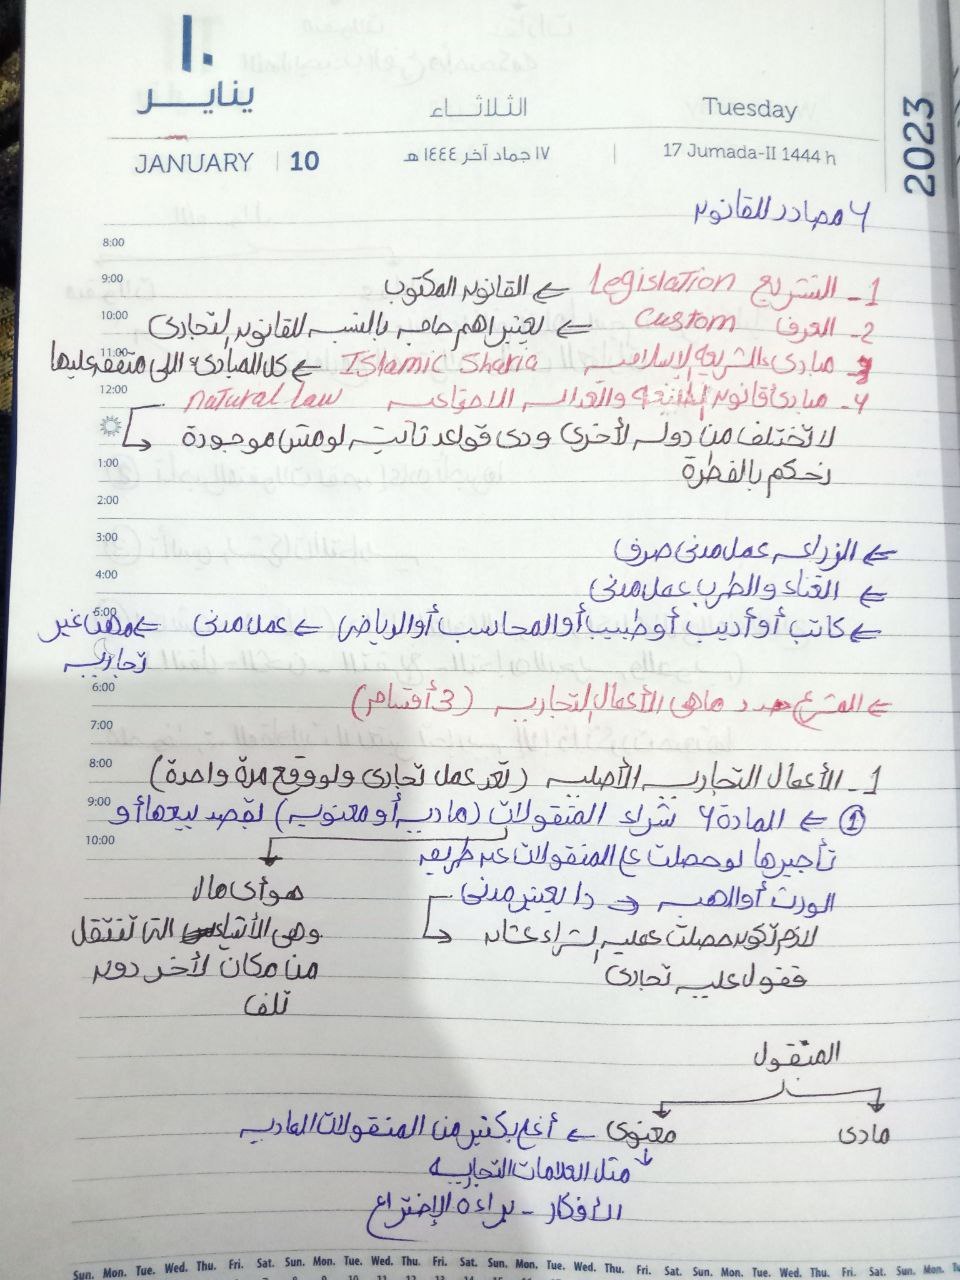 ١٠
يناير
الثلاثاء
Tuesday
JANUARY | 10
١٧ جماد آخر ١٤٤٤ هـ | 17 Jumada-II 1444 h
2023
٤ مصادر للقانون
8:00
9:00
1- التشريع Legislation ⇐ القانون المكتوب
10:00
2- العرف Custom ⇐ يعتبر اهم حاجه بالنسبه للقانون التجارى
11:00
3- مبادىء الشريعه الإسلاميه Islamic Sharia ⇐ كل المبادىء اللى متفقه عليها
12:00
٤- مبادئ قانون الطبيعه والعداله الاجتماعيه natural law
لا تختلف من دوله لأخرى ودى قواعد ثابته لو مش موجودة
1:00
نحكم بالفطرة
2:00
3:00
⇐ الزراعه عمل مدنى صرف
4:00
⇐ الغناء والطرب عمل مدنى
5:00
⇐ كاتب أو أديب أو طبيب أو المحاسب أو الرياضى ⇐ عمل مدنى ⇐ مهنا غير
تجاريه
6:00
⇐ المشرع حدد ماهى الأعمال التجاريه (3 أقسام)
7:00
8:00
1- الأعمال التجاريه الأصليه (تعد عمل تجارى ولو وقع مرة واحدة)
9:00
① ⇐ المادة ٤ شراء المنقولات (ماديه أو معنويه) بقصد بيعها أو
10:00
تأجيرها لو حصلت ع المنقولات عن طريق
الورث أو الهبه ⇐ دا يعتبر مدنى
لازم تكون حصلت عمليه الشراء عشان
نقول عليه تجارى
هو أى مال
وهى الأشياء التى تنتقل
من مكان لأخر دون
تلف
المنقول
مادى
معنوى ← أغلى بكتير من المنقولات الماديه
مثل العلامات التجاريه
الأفكار - براءة الإختراع
Sun. Mon. Tue. Wed. Thu. Fri. Sat. Sun. Mon. Tue. Wed. Thu. Fri. Sat. Sun. Mon. Tue. Wed. Thu. Fri. Sat. Sun. Mon. Tue. Wed. Thu. Fri. Sat. Sun. Mon.